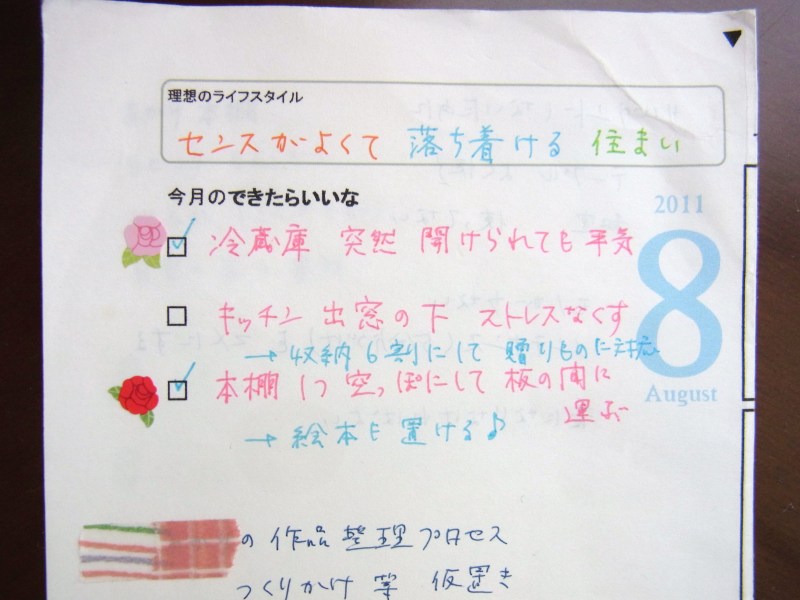 理想のライフスタイル
センスがよくて 落ち着ける 住まい
今月のできたらいいな
2011
8
August
冷蔵庫 突然 開けられても平気
キッチン 出窓の下 ストレスなくす
→収納6割にして 贈りものに対応
本棚1つ 空っぽにして 板の間に
運ぶ
→絵本も置ける♪
の作品整理プロセス
つくりかけ 等 仮置き